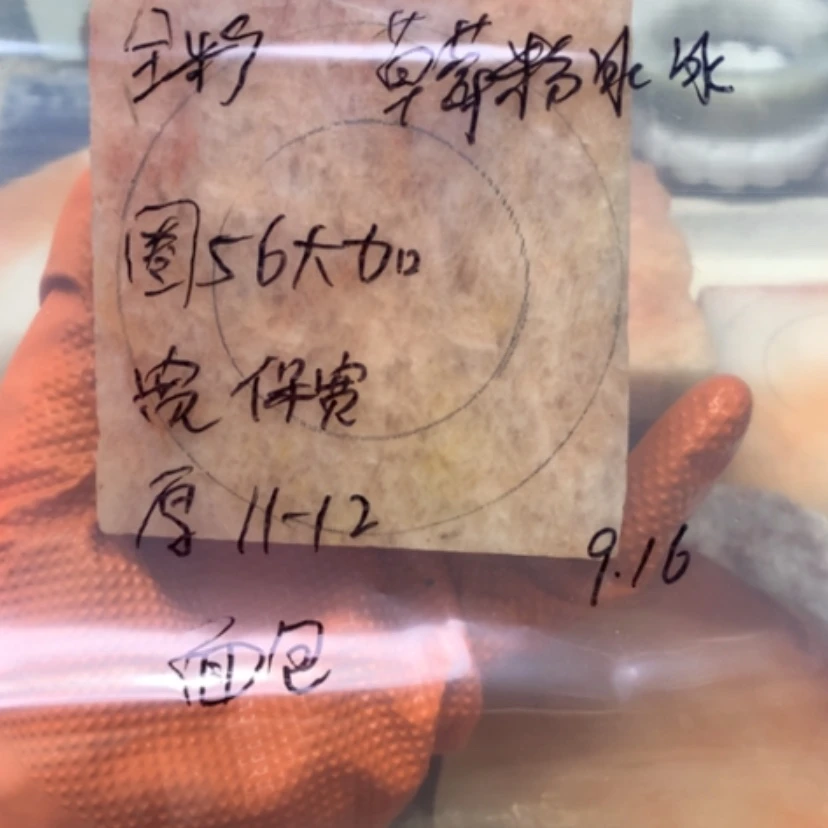 全彩 草莓粉冰冰
圈56大加
宽 保宽
厚 11-12
9.16
面包